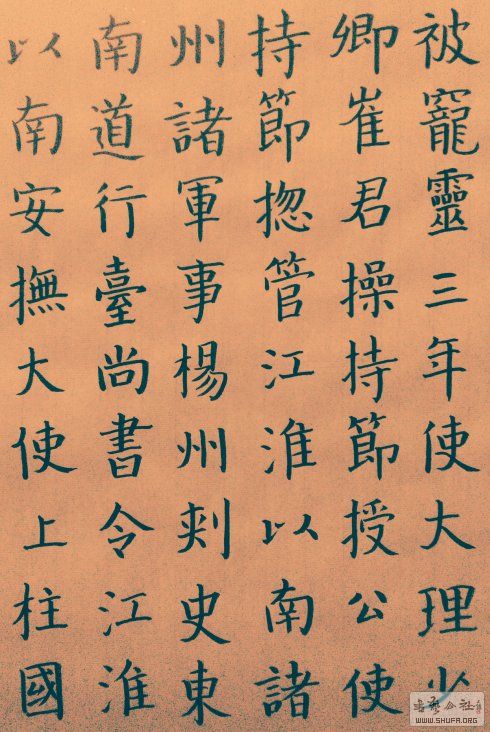 被寵靈三年使大理少
卿崔君操持節授公使
持節揔管江淮以南諸
州諸軍事楊州刾史東
南道行臺尚書令江淮
以南安撫大使上柱國
WWW.SHUFA.ORG